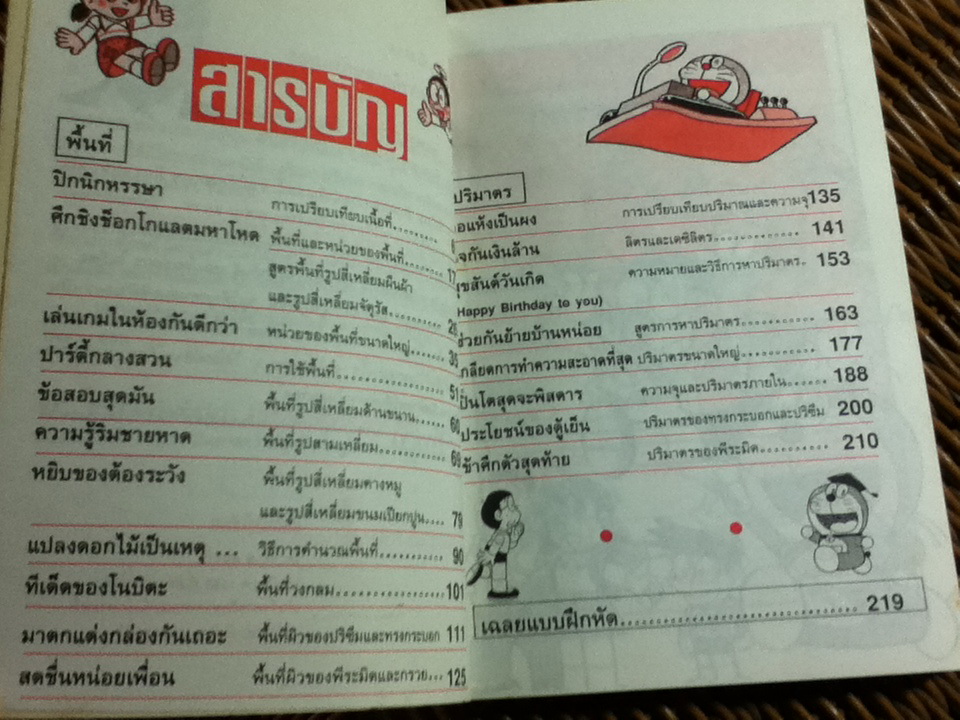 สารบัญ
พื้นที่
ปิกนิกหรรษา การเปรียบเทียบเนื้อที่........
ศึกชิงช็อกโกแลตมหาโหด พื้นที่และหน่วยของพื้นที่....... 17
สูตรพื้นที่รูปสี่เหลี่ยมผืนผ้า
และรูปสี่เหลี่ยมจัตุรัส........
เล่นเกมในห้องกันดีกว่า หน่วยของพื้นที่ขนาดใหญ่......
ปาร์ตี้กลางสวน การใช้พื้นที่................ 51
ข้อสอบสุดมัน พื้นที่รูปสี่เหลี่ยมด้านขนาน...... 60
ความรู้ริมชายหาด พื้นที่รูปสามเหลี่ยม........... 69
หยิบของต้องระวัง พื้นที่รูปสี่เหลี่ยมคางหมู
และรูปสี่เหลี่ยมขนมเปียกปูน.... 79
แปลงดอกไม้เป็นเหตุ ... วิธีการคำนวณพื้นที่........... 90
ทีเด็ดของโนบิตะ พื้นที่วงกลม................ 101
มาตกแต่งกล่องกันเถอะ พื้นที่ผิวของปริซึมและทรงกระบอก 111
สดชื่นหน่อยเพื่อน พื้นที่ผิวของพีระมิดและกรวย... 125
ปริมาตร
อแห้งเป็นผง การเปรียบเทียบปริมาณและความจุ 135
จกันเงินล้าน ลิตรและเดซิลิตร............. 141
ุขสันต์วันเกิด ความหมายและวิธีการหาปริมาตร.. 153
Happy Birthday to you)
ช่วยกันย้ายบ้านหน่อย สูตรการหาปริมาตร........... 163
กลียดการทำความสะอาดที่สุด ปริมาตรขนาดใหญ่........... 177
ปิ่นโตสุดจะพิสดาร ความจุและปริมาตรภายใน...... 188
ประโยชน์ของตู้เย็น ปริมาตรของทรงกระบอกและปริซึม 200
ข้าศึกตัวสุดท้าย ปริมาตรของพีระมิด.......... 210
เฉลยแบบฝึกหัด............................ 219